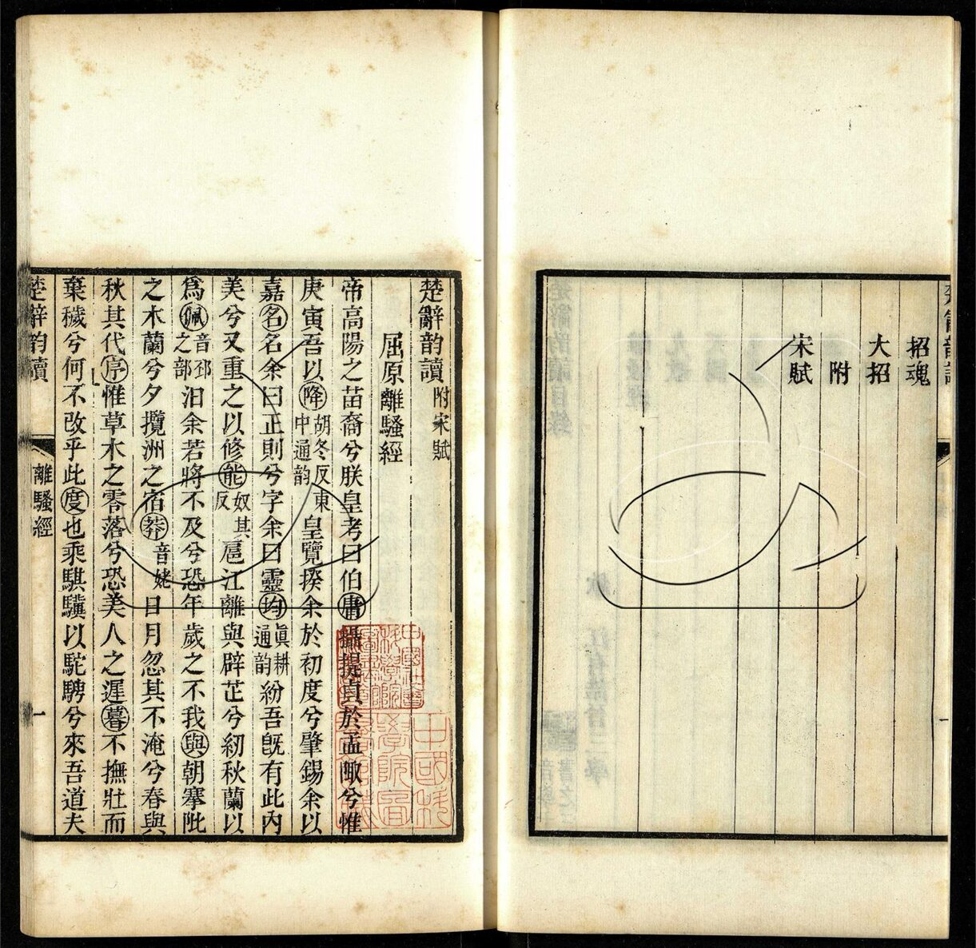 招魂
大招
附
宋賦
楚辭韵讀 附宋賦
屈原離騷經
帝高陽之苗裔兮朕皇考曰伯庸攝提貞於孟陬兮惟
庚寅吾以降胡冬反東中通韵皇覽揆余於初度兮肇錫余以
嘉名名余曰正則兮字余曰靈均真耕通韵紛吾既有此內
美兮又重之以修能奴其反扈江離與辟芷兮紉秋蘭以
爲佩音邳之部汨余若將不及兮恐年歲之不我與朝搴阰
之木蘭兮夕攬洲之宿莽音姥日月忽其不淹兮春與
秋其代序惟草木之零落兮恐美人之遲暮不撫壯而
棄穢兮何不改乎此度也乘騏驥以駝騁兮來吾道夫
楚辭韵讀
離騷經
一